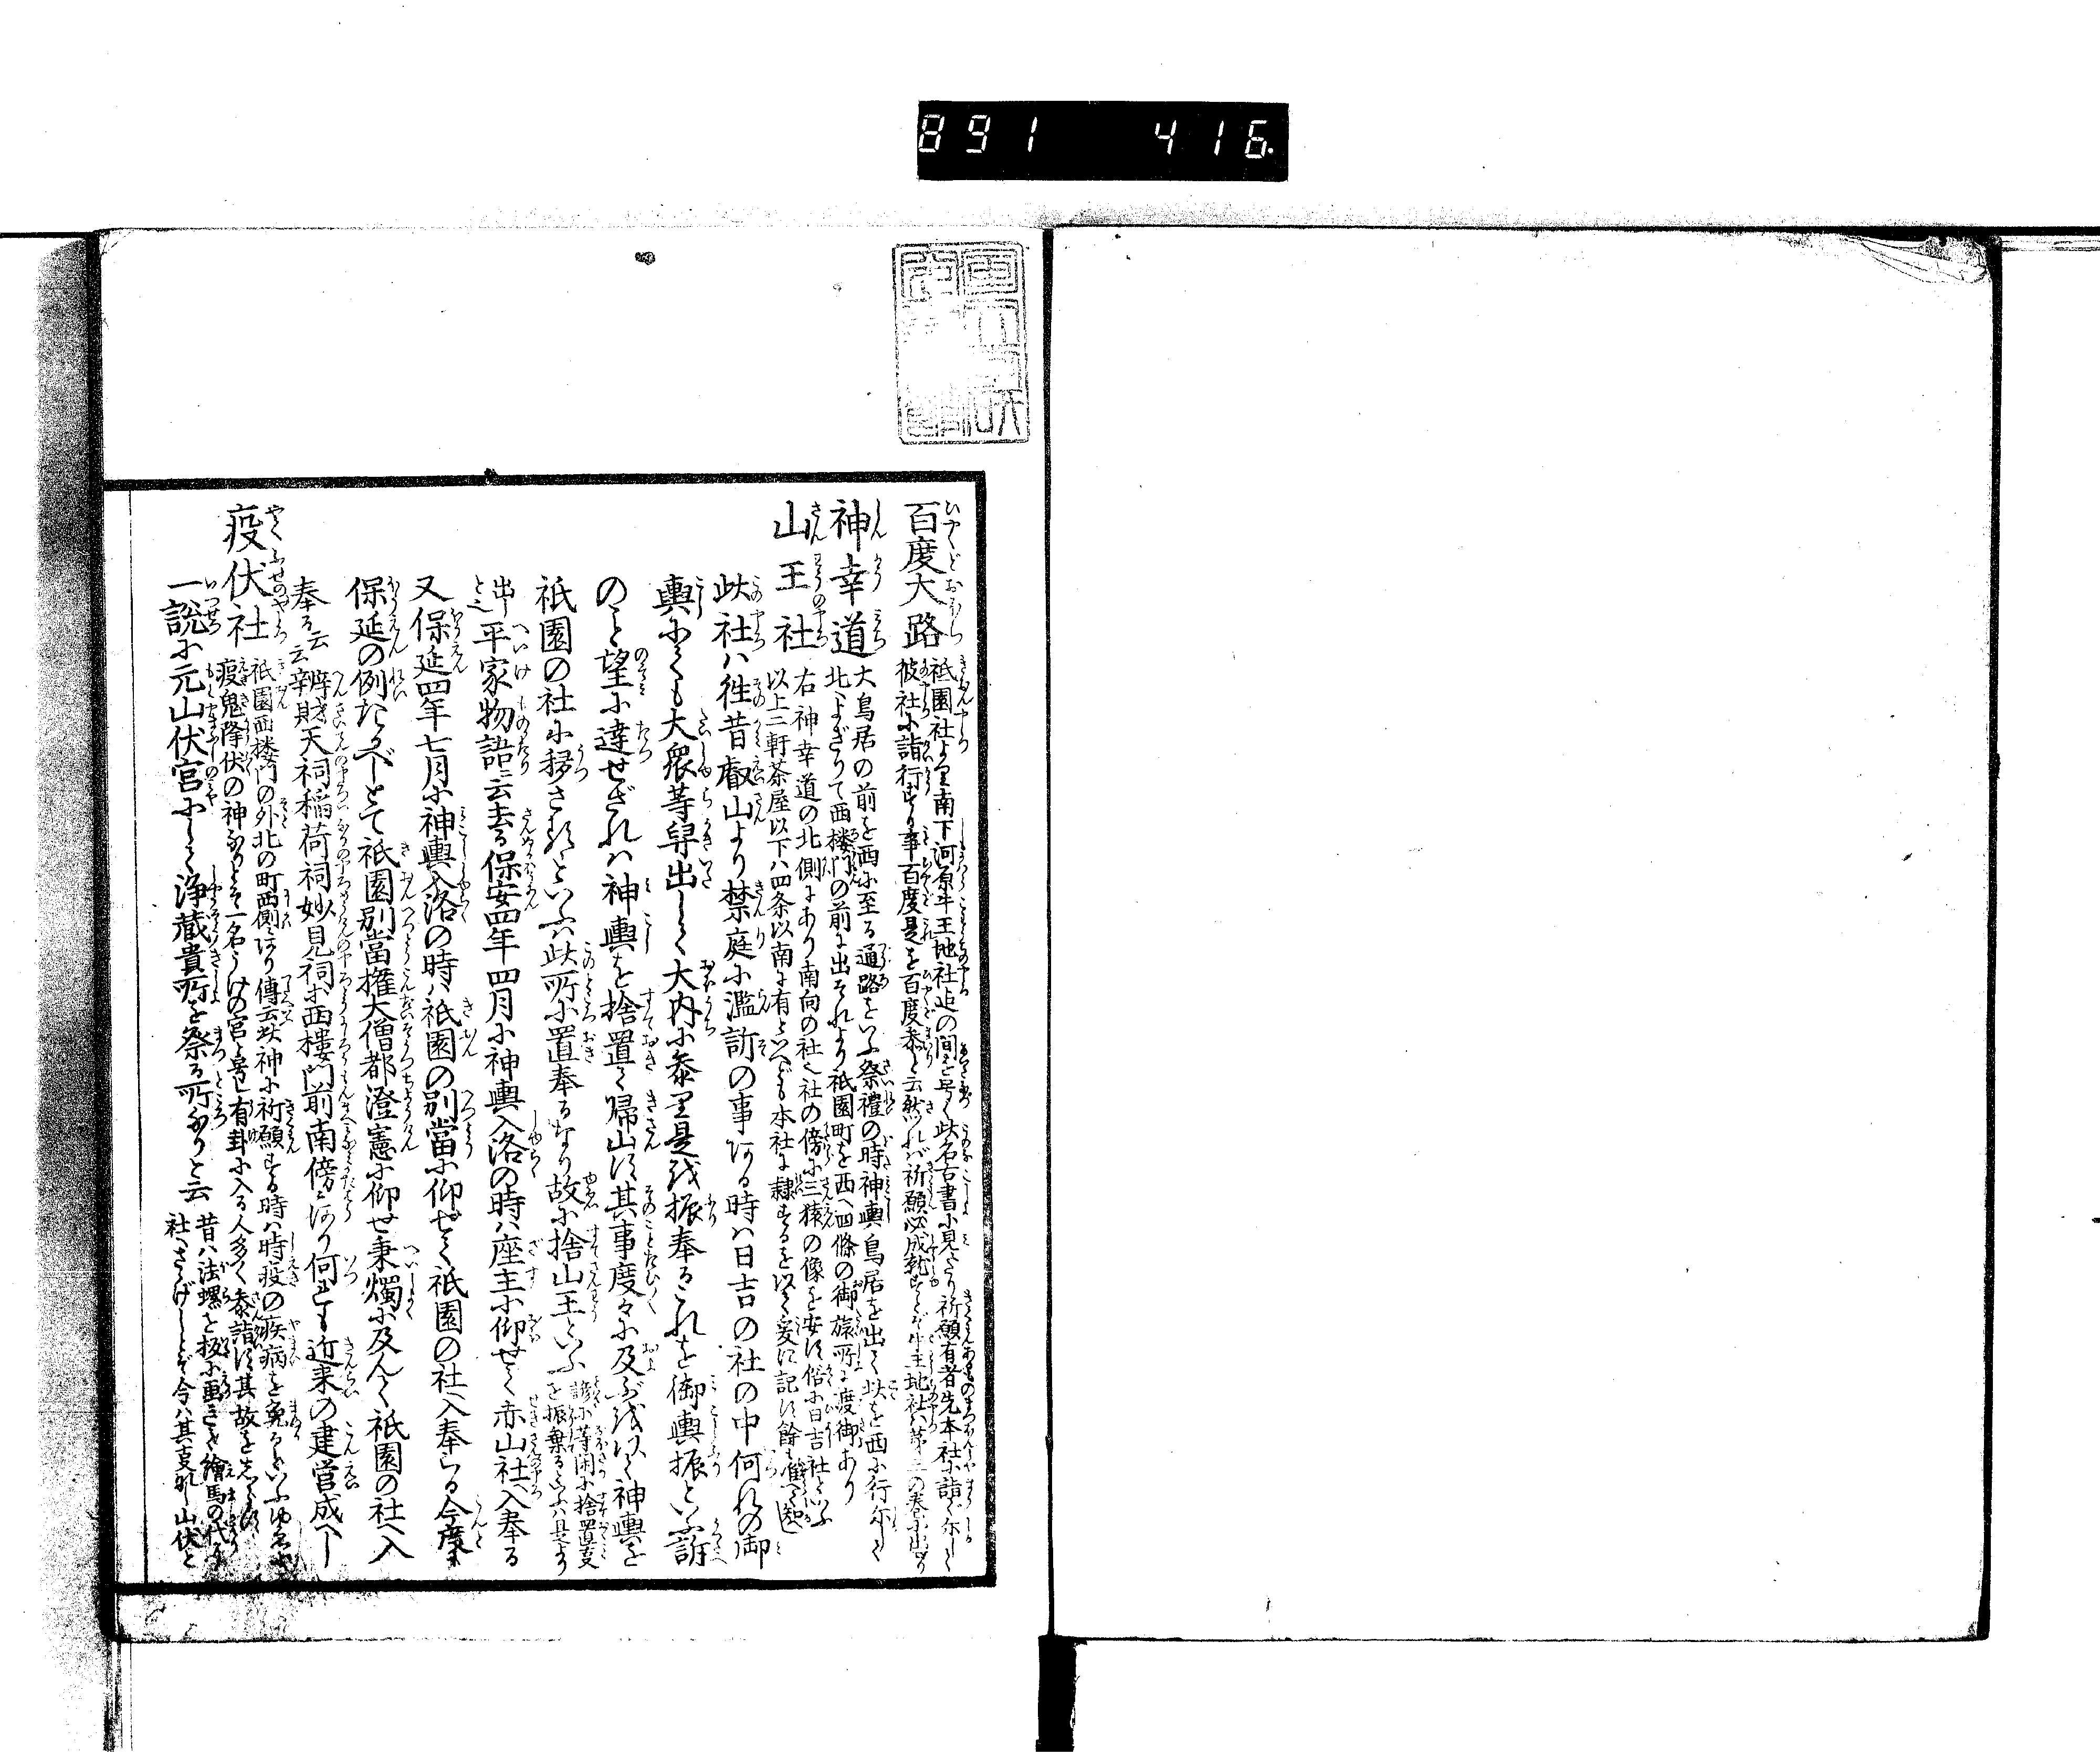 891 416.
百度大路
祇園社より南下河原牛王地社迄の間を号く此名古書に見えたり祈願有者先本社に詣で尓して
彼社に詣行する事百度是を百度参と云然れバ祈願必成就すとぞ牛王地社ハ第三の巻に出せり
神幸道
大鳥居の前を西に至る通路をいふ祭禮の時神輿鳥居を出て此を西に行尓して
北へよぎりて西楼門の前に出それより祇園町を西へ四條の御旅所に渡御あり
山王社
右神幸道の北側にあり南向の社也社の傍に三猿の像を安す俗に日吉社といふ
以上二軒茶屋以下ハ四条以南に有といへども本社に隷するを以て爰に記す餘も准て知べし
此社ハ徃昔叡山より禁庭に濫訴の事ある時ハ日吉の社の中何れの御
輿にても大衆等舁出して大内に参り是を振奉るこれを御輿振といふ訴
のこと望に達せざれハ神輿を捨置て帰山す其事度々に及ぶを以て神輿を
祇園の社に移さるといふハ此所に置奉るなり故に捨山王といふ
諺に等閑に捨置事を振棄るといふハ是より
出と也
平家物語云去る保安四年四月に神輿入洛の時ハ座主に仰せて赤山社へ入奉る
又保延四年七月に神輿入洛の時ハ祇園の別當に仰せて祇園の社へ入奉らる今度ハ
保延の例たるべしとて祇園別當権大僧都澄憲に仰せ秉燭に及んて祇園の社へ入
奉る云云
辨財天祠稲荷祠妙見祠ハ西楼門前南傍にあり何れも近来の建営成べし
疫伏社
祇園西楼門の外北の町西側にあり傳云此神に祈願する時ハ時疫の疾病を免るといふゆゑに
疫鬼降伏の神なりとぞ一名うけの宮と号し有卦に入る人多く参詣す其故をしらず
一説に元山伏宮にして浄蔵貴所を祭る所なりと云
昔ハ法螺を板に画きて繪馬の代に
社へさゝげしとぞ今ハ其事なし山伏と